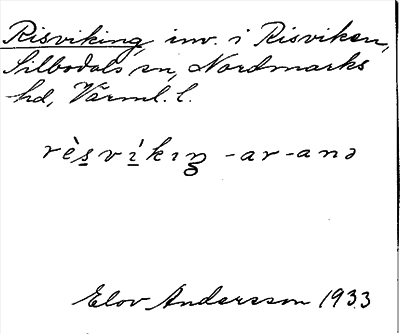 Risviking, inv. i Risviken,
Silbodals sn, Nordmarks
hd, Värml. l.
rè̀s̲vík̲ıŋ -ar -anə
Elov Andersson 1933